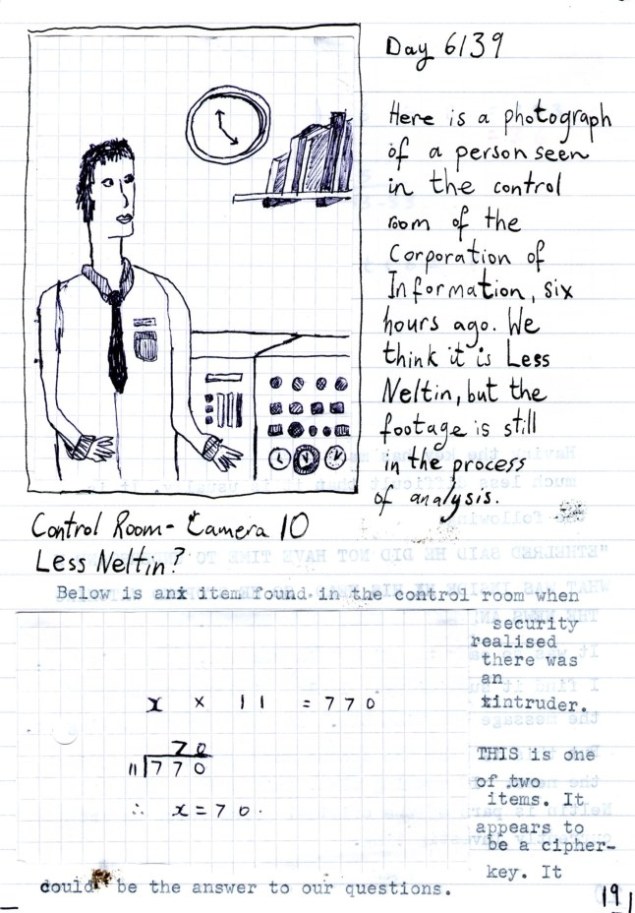 Day 6139
Here is a photograph
of a person seen
in the control
room of the
Corporation of
Information, six
hours ago. We
think it is Less
Neltin, but the
footage is still
in the process
of analysis.
Control Room - Camera 10
Less Neltin?
Below is anx item found in the control room when
security
realised
there was
an
xintruder.
x × 11 = 770
70
11 770
∴ x = 70.
THIS is one
of two
items. It
appears to
be a cipher-
key. It
could be the answer to our questions.
19